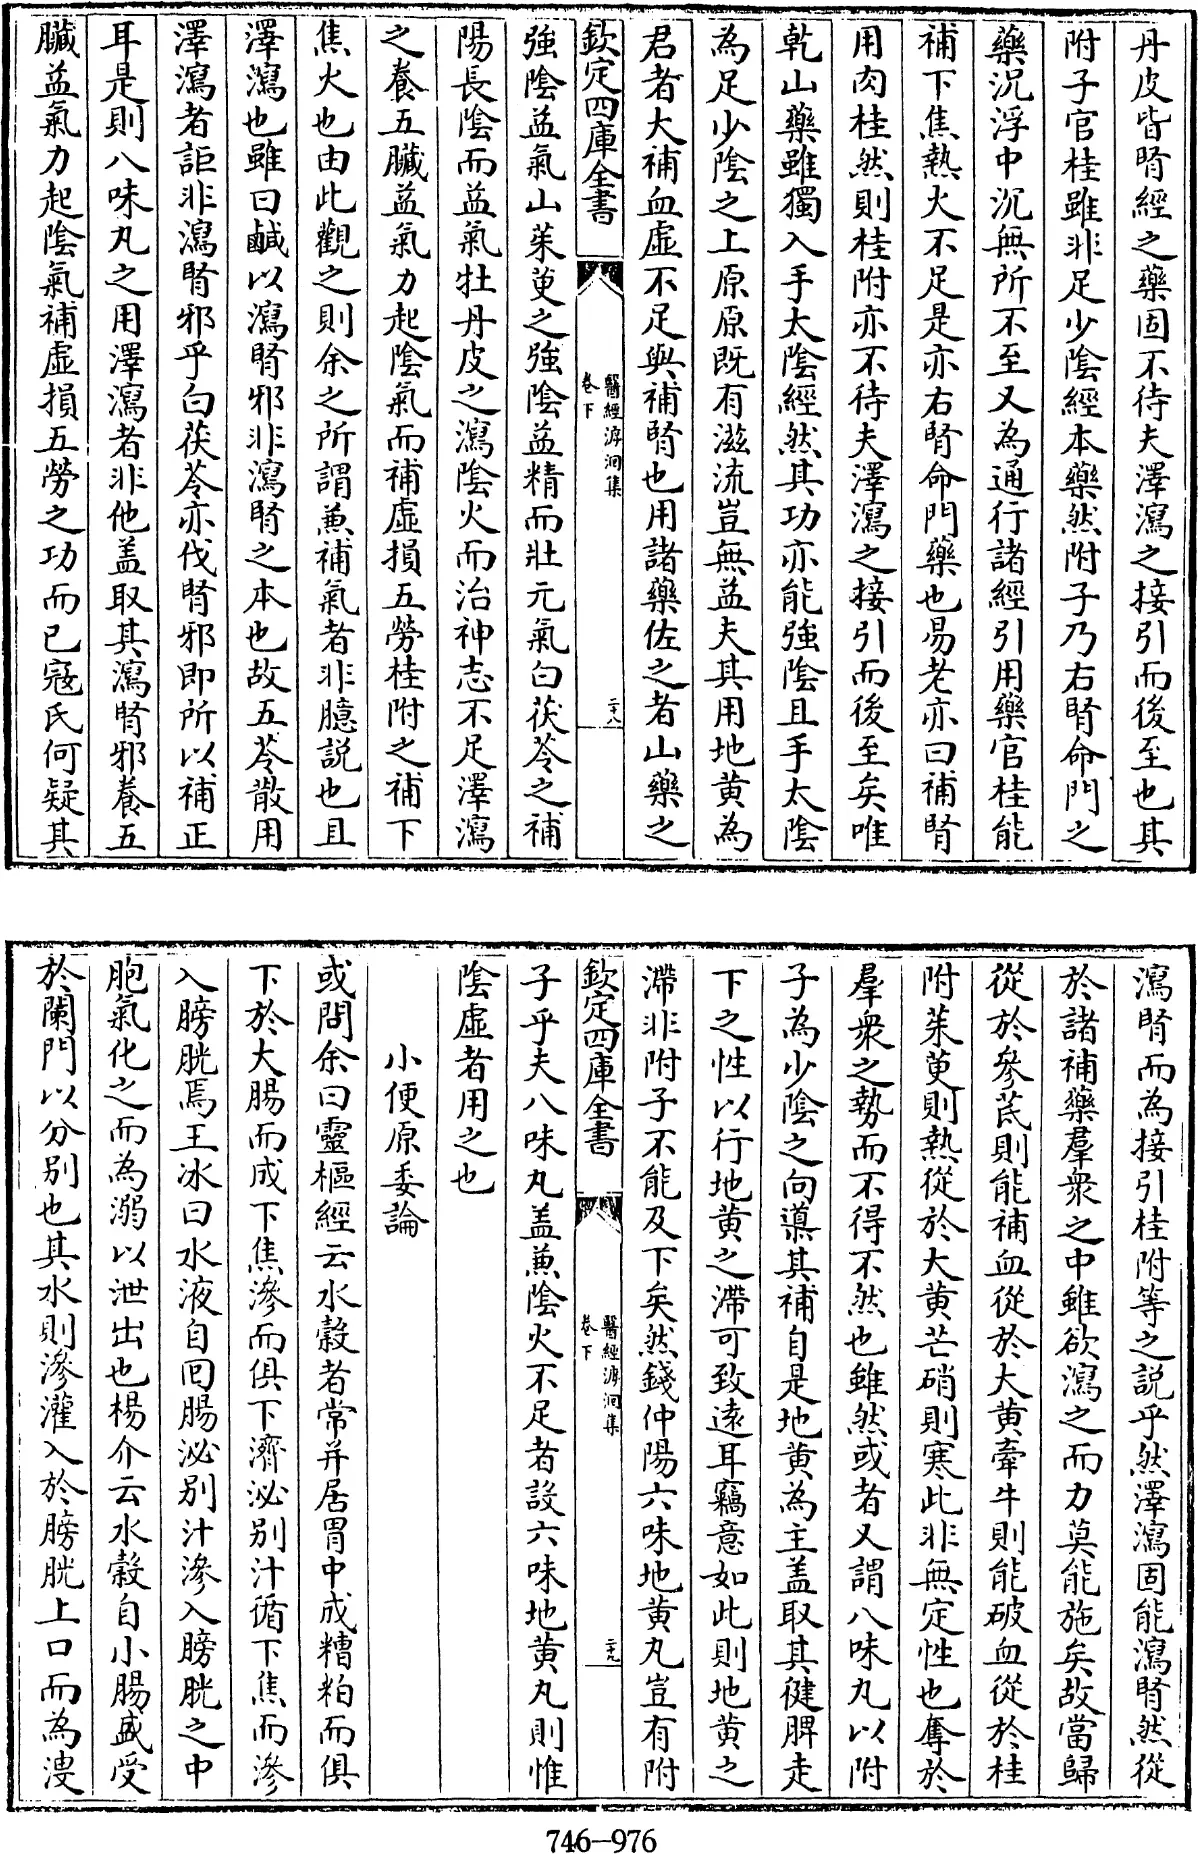 丹皮皆腎經之藥固不待夫澤瀉之接引而後至也其
附子官桂雖非足少陰經本藥然附子乃右腎命門之
藥沉浮中沉無所不至又為通行諸經引用藥官桂能
補下焦熱火不足是亦右腎命門藥也易老亦曰補腎
用肉桂然則桂附亦不待夫澤瀉之接引而後至矣唯
乾山藥雖獨入手太陰經然其功亦能強陰且手太陰
為足少陰之上原原既有滋流豈無益夫其用地黄為
君者大補血虛不足與補腎也用諸藥佐之者山藥之
欽定四庫全書
醫經溯洄集
卷下
二十八
強陰益氣山茱萸之強陰益精而壯元氣白茯苓之補
陽長陰而益氣牡丹皮之瀉陰火而治神志不足澤瀉
之養五臟益氣力起陰氣而補虛損五勞桂附之補下
焦火也由此觀之則余之所謂兼補氣者非臆説也且
澤瀉也雖曰鹹以瀉腎邪非瀉腎之本也故五苓散用
澤瀉者詎非瀉腎邪乎白茯苓亦伐腎邪即所以補正
耳是則八味丸之用澤瀉者非他盖取其瀉腎邪養五
臟益氣力起陰氣補虛損五勞之功而已寇氏何疑其
瀉腎而為接引桂附等之説乎然澤瀉固能瀉腎然從
於諸補藥羣衆之中雖欲瀉之而力莫能施矣故當歸
從於參芪則能補血從於大黄牽牛則能破血從於桂
附茱萸則熱從於大黄芒硝則寒此非無定性也奪於
羣衆之勢而不得不然也雖然或者又謂八味丸以附
子為少陰之向導其補自是地黄為主盖取其健脾走
下之性以行地黄之滯可致逺耳竊意如此則地黄之
滯非附子不能及下矣然錢仲陽六味地黄丸豈有附
欽定四庫全書
醫經溯洄集
卷下
二十九
子乎夫八味丸盖兼陰火不足者設六味地黄丸則惟
陰虛者用之也
小便原委論
或問余曰靈樞經云水穀者常并居胃中成糟粕而俱
下於大腸而成下焦滲而俱下濟泌别汁循下焦而滲
入膀胱焉王冰曰水液自囘腸泌别汁滲入膀胱之中
胞氣化之而為溺以泄出也楊介云水穀自小腸盛受
於闌門以分别也其水則滲灌入於膀胱上口而為溲
746-976